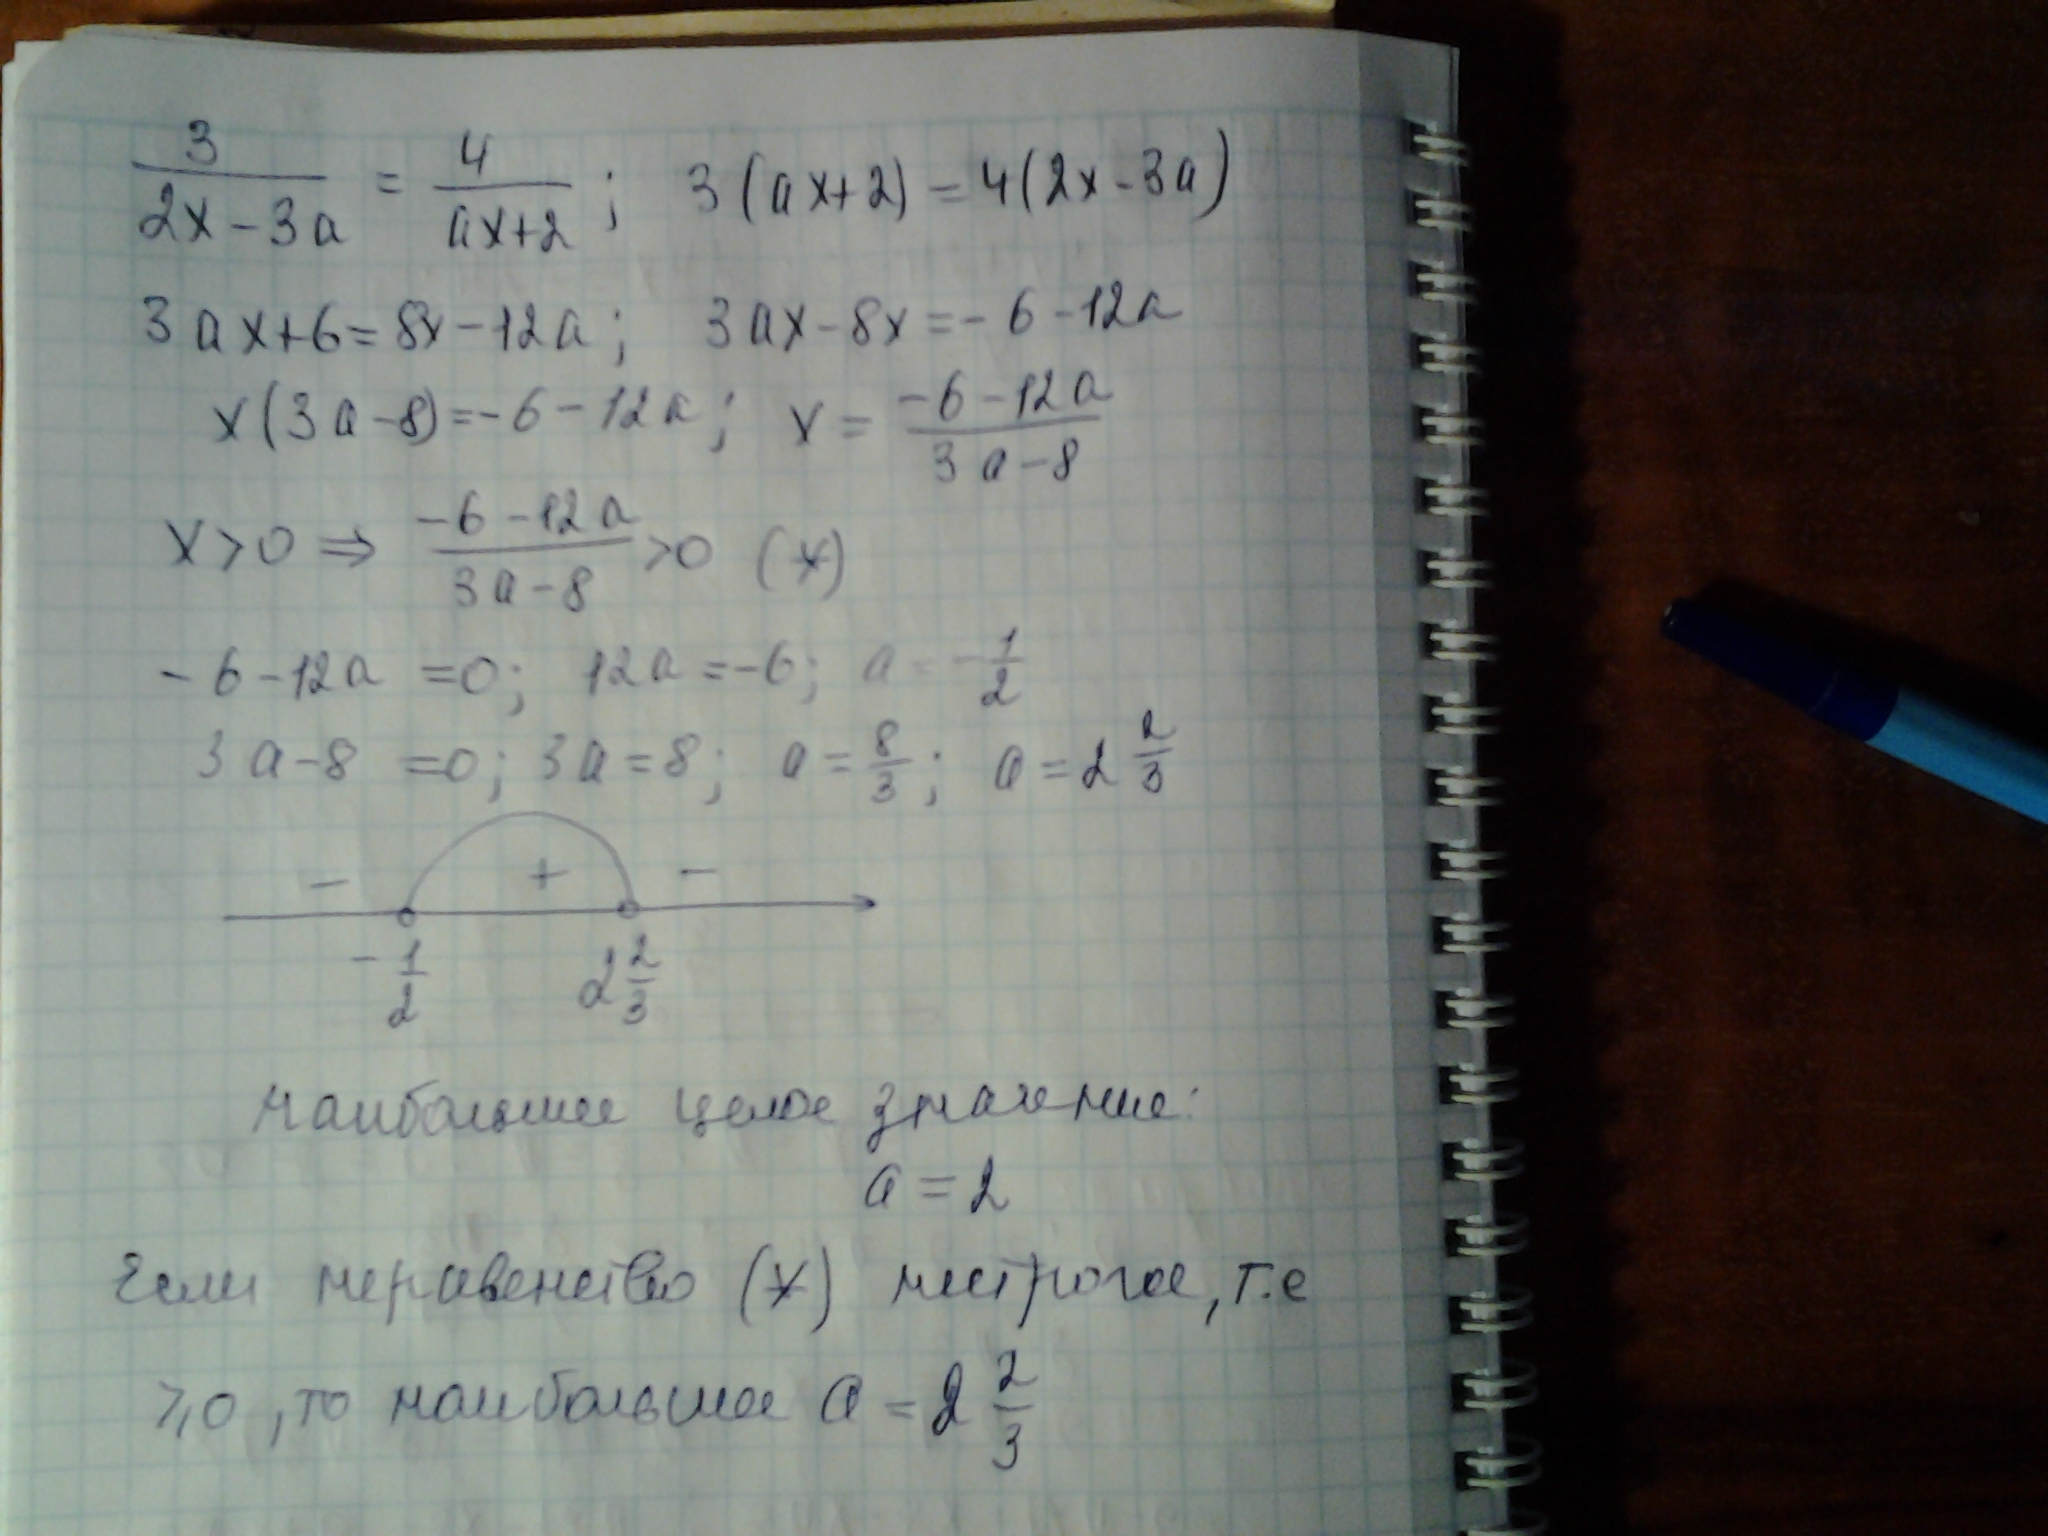 3/(2x-3a) = 4/(ax+2); 3(ax+2)=4(2x-3a)
3ax+6=8x-12a; 3ax-8x=-6-12a
x(3a-8)=-6-12a; x=(-6-12a)/(3a-8)
x>0 ⇒ (-6-12a)/(3a-8) >0 (*)
-6-12a =0; 12a=-6; a=-1/2
3a-8 =0; 3a=8; a=8/3; a=2 2/3
- + -
-1/2 2 2/3
наибольшее целое значение:
a=2
Если неравенство (*) нестрогое, т.е
⩾0, то наибольшее a=2 2/3